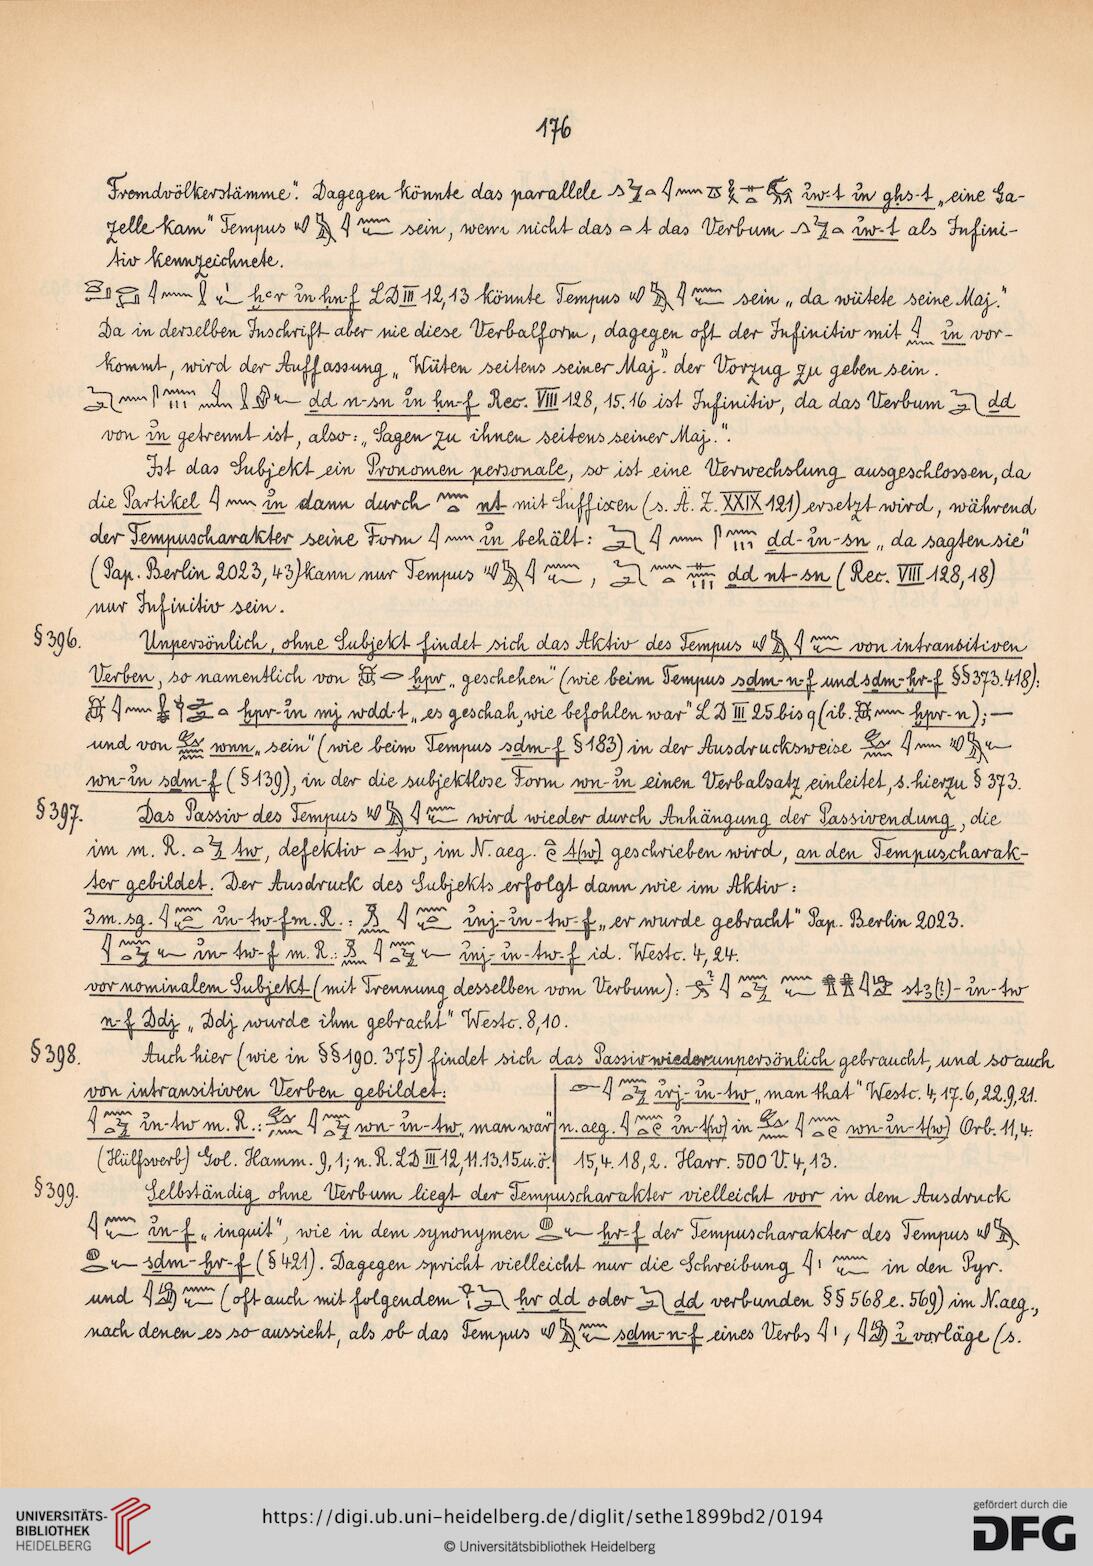 176
Fremdvölkerstämme". Dagegen könnte das parallele iw-t in ghs-t „eine Ga-
zelle kam" Tempus sein, wenn nicht das t das Verbum iw-t als Infini-
tiv kennzeichnete.
ḫꜥr in ḥn-f LD III 12,13 könnte Tempus sein „da wütete seine Maj."
Da in derselben Inschrift aber nie diese Verbalform, dagegen oft der Infinitiv mit in vor-
kommt, wird der Auffassung „Wüten seitens seiner Maj." der Vorzug zu geben sein.
dd n-sn in ḥn-f Rec. VIII 128, 15.16 ist Infinitiv, da das Verbum dd
von in getrennt ist, also: „Sagen zu ihnen seitens seiner Maj.".
Ist das Subjekt ein Pronomen personale, so ist eine Verwechslung ausgeschlossen, da
die Partikel in dann durch nt mit Suffixen (s. Ä. Z. XXIX 121) ersetzt wird, während
der Tempuscharakter seine Form in behält: dd-in-sn „da sagten sie"
(Pap. Berlin 2023, 43) kann nur Tempus , dd nt-sn (Rec. VIII 128, 18)
nur Infinitiv sein.
§ 396. Unpersönlich, ohne Subjekt findet sich das Aktiv des Tempus von intransitiven
Verben, so namentlich von ḫpr „geschehen" (wie beim Tempus sdm-n-f und sdm-ḫr-f §§ 373. 418):
ḫpr-in mj wdd-t „es geschah, wie befohlen war" LD III 25 bis q (ib. ḫpr-n); —
und von wnn „sein" (wie beim Tempus sdm-f § 183) in der Ausdrucksweise
wn-in sdm-f (§ 139), in der die subjektlose Form wn-in einen Verbalsatz einleitet, s. hierzu § 373.
§ 397. Das Passiv des Tempus wird wieder durch Anhängung der Passivendung, die
im m. R. tw, defektiv tw, im N. aeg. t(w) geschrieben wird, an den Tempuscharak-
ter gebildet. Der Ausdruck des Subjekts erfolgt dann wie im Aktiv:
3 m. sg. in-tw-f m. R.: inj-in-tw-f „er wurde gebracht" Pap. Berlin 2023.
in-tw-f m. R.: inj-in-tw-f id. Westc. 4, 24.
vor nominalem Subjekt (mit Trennung desselben vom Verbum): st3(?)-in-tw
n-f Ddj „Ddj wurde ihm gebracht" Westc. 8, 10.
§ 398. Auch hier (wie in §§ 190. 375) findet sich das Passiv wieder unpersönlich gebraucht, und so auch
von intransitiven Verben gebildet:
in-tw m. R.: wn-in-tw „man war"
(Hülfsverb) Gol. Hamm. 9, 1; n. R. LD III 12, 11. 13. 15 u. ö.
irj-in-tw „man that" Westc. 4, 17. 6, 22. 9, 21.
n. aeg. in-t(w) in wn-in-t(w) Orb. 11, 4.
15, 4. 18, 2. Harr. 500 V. 4, 13.
§ 399. Selbständig ohne Verbum liegt der Tempuscharakter vielleicht vor in dem Ausdruck
in-f „inquit", wie in dem synonymen ḫr-f der Tempuscharakter des Tempus
sdm-ḫr-f (§ 421). Dagegen spricht vielleicht nur die Schreibung in den Pyr.
und (oft auch mit folgendem ḥr dd oder dd verbunden §§ 568 e. 569) im N. aeg.,
nach denen es so aussieht, als ob das Tempus sdm-n-f eines Verbs , i vorläge (s.
UNIVERSITÄTS-
BIBLIOTHEK
HEIDELBERG
https://digi.ub.uni-heidelberg.de/diglit/sethe1899bd2/0194
© Universitätsbibliothek Heidelberg
gefördert durch die
DFG